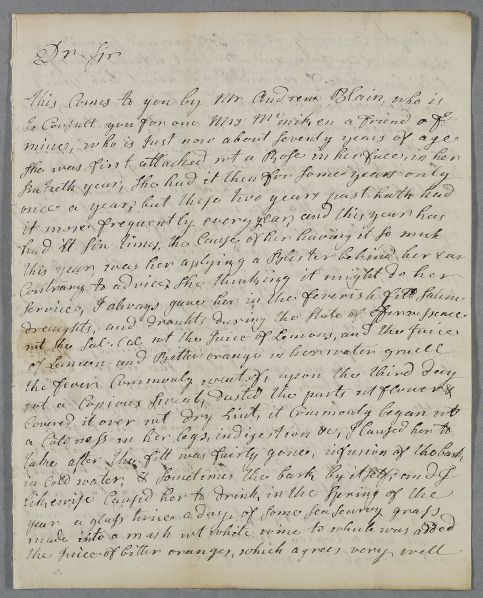 Dr Sir
This Comes to you by Mr Andrew Blain, who is
to Consult you for one Mrs Mc a friend of
mine, who is Just now about seventy years of age
She was first attacked wt a Rose in her face in her
year; She had it then for some years only
once a year, but these two years past hath had
it more frequently every year, and this year has
had it Six times, the Cause of her having it so much
this year, was her applying a Blister behind her ear
Contrary to advice, She thinking it might do her
Service, I always gave her in the feverish fitt Saline
Draughts, and draughts during the State of Effervespence
wt the Sal: wt the Juice of Lemons, and the Juice
of Lemon and Bitter orange in her water gruell
the fever Commonly went of, upon the third day
wt a Copious Sweat, dusted the parts wt flower &
Covered it over wt dry lint, it Commonly began wt
a Coldness in her legs, indigestion &c, I Caused her to
take after the fitt was fairly gone, infusion of the bark
in Cold water, & Sometimes the bark by itself; and I
likewise Caused her to drink, in the Spring of the
year a glass twice a day, of some Sea Scurvy grass
made into a mash wt white wine to which was added
the Juice of bitter oranges, which agrees very well